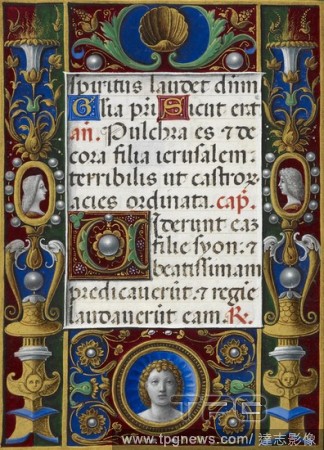 spiritus laudet dñm
Glia pri Sicut erat
añ. Pulchra es & de
cora filia ierusalem:
terribilis ut castror̃
acies ordinata. cap̃.
Viderunt eaʒ
filie syon: &
beatissimam
predicaverũt. & regie
laudaverũt eam. R.
TPG
www.tpgnews.com / 達志影像